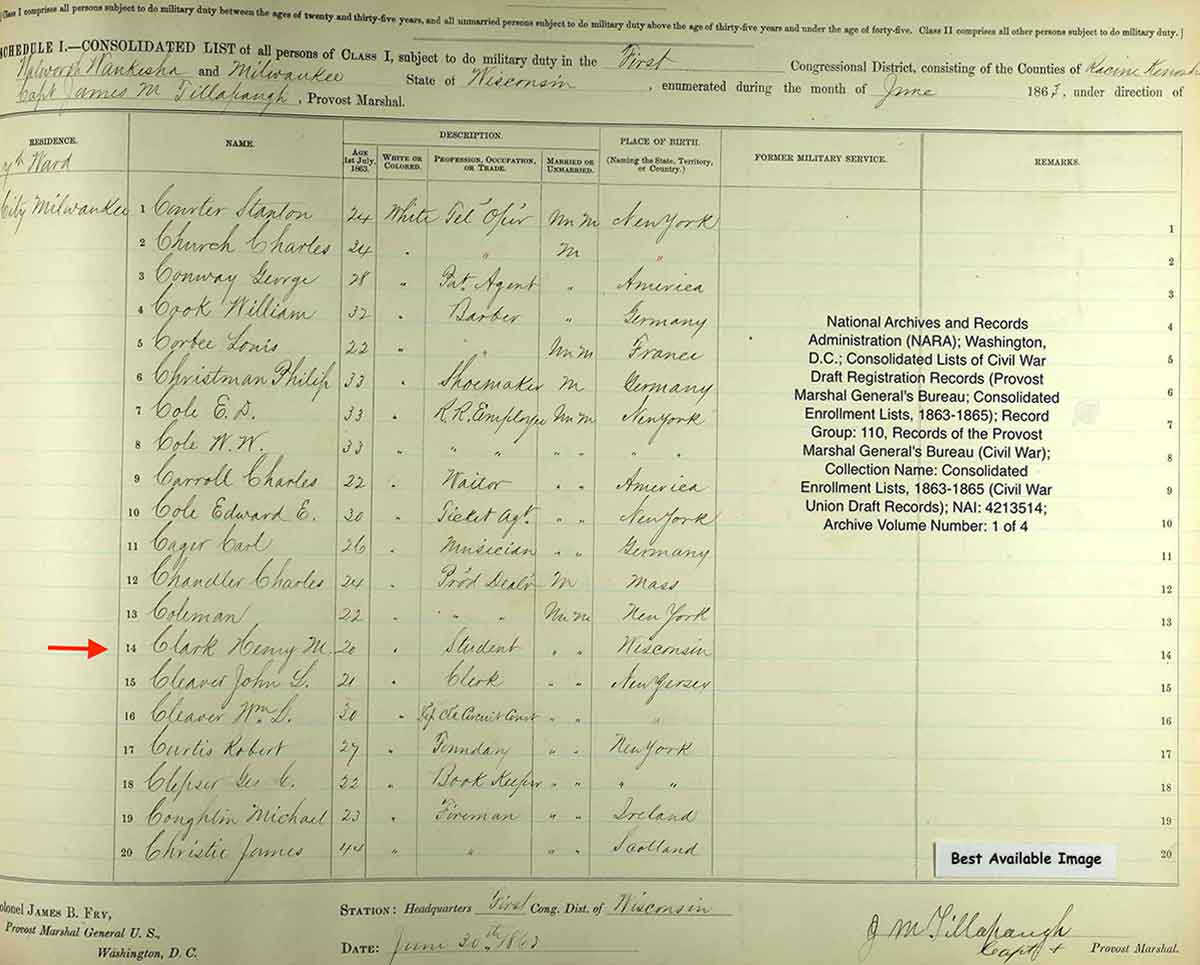 [Class I comprises all persons subject to do military duty between the ages of twenty and thirty-five years, and all unmarried persons subject to do military duty above the age of thirty-five years and under the age of forty-five. Class II comprises all other persons subject to do military duty.]
SCHEDULE I.—CONSOLIDATED LIST of all persons of CLASS I, subject to do military duty in the First Congressional District, consisting of the Counties of Racine Kenosh
Walworth Waukesha and Milwaukee State of Wisconsin, enumerated during the month of June 1863, under direction of
Capt James M Tillapaugh, Provost Marshal.
RESIDENCE. NAME. DESCRIPTION. PLACE OF BIRTH. FORMER MILITARY SERVICE. REMARKS.
AGE 1st July, 1863. WHITE OR COLORED. PROFESSION, OCCUPATION, OR TRADE. MARRIED OR UNMARRIED. (Naming the State, Territory, or Country.)
7th Ward
City Milwaukee 1 Courter Stanton 24 White Tel' Op'r Un M New York 1
2 Church Charles 24 " " M " 2
3 Conway George 28 " Pat. Agent " America 3
4 Cook William 32 " Barber " Germany 4
5 Corbee Louis 22 " " Un M France 5
6 Christman Philip 33 " Shoemaker M Germany 6
7 Cole E. D. 33 " R.R. Employee Un M New York 7
8 Cole W. W. 33 " " " " " " " 8
9 Carroll Charles 22 " Waitor " " America 9
10 Cole Edward E. 30 " Ticket Agt. " " New York 10
11 Cager Carl 26 " Musician " " Germany 11
12 Chandler Charles 24 " Prod Deal'r M Mass 12
13 Coleman 22 " " " Un M New York 13
14 Clark Henry M. 20 " Student " " Wisconsin 14
15 Cleaver John L. 21 " Clerk " " New Jersey 15
16 Cleaver Wm L. 30 " Circuit Court " " " 16
17 Curtis Robert 27 " " " New York 17
18 Clepser Geo C. 22 " Book Keeper " " " " 18
19 Coughlin Michael 23 " Fireman " " Ireland 19
20 Christie James 44 " " " " Scotland 20
National Archives and Records
Administration (NARA); Washington,
D.C.; Consolidated Lists of Civil War
Draft Registration Records (Provost
Marshal General's Bureau; Consolidated
Enrollment Lists, 1863-1865); Record
Group: 110, Records of the Provost
Marshal General's Bureau (Civil War);
Collection Name: Consolidated
Enrollment Lists, 1863-1865 (Civil War
Union Draft Records); NAI: 4213514;
Archive Volume Number: 1 of 4
Best Available Image
olonel JAMES B. FRY,
Provost Marshal General U. S.,
Washington, D. C.
STATION: Headquarters First Cong. Dist. of Wisconsin
DATE: June 30th 1863
J M Tillapaugh
Capt + Provost Marshal.